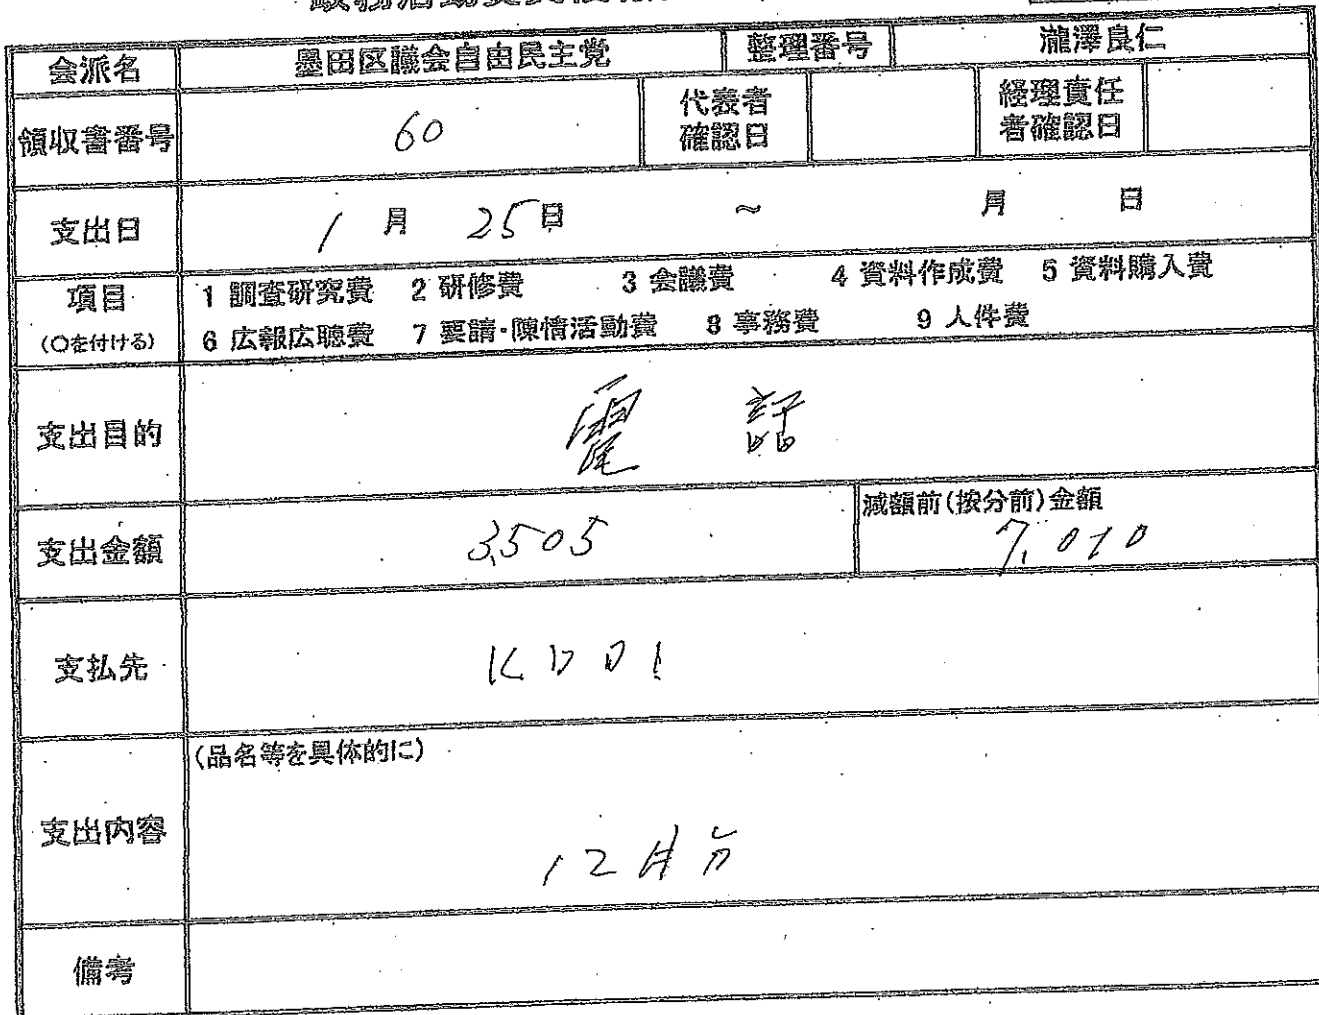 会派名 墨田区議会自由民主党 整理番号 瀧澤良仁
領収書番号 60 代表者確認日 経理責任者確認日
支出日 1月 25日 ~ 月 日
項目 1 調査研究費 2 研修費 3 会議費 4 資料作成費 5 資料購入費
(○を付ける) 6 広報広聴費 7 要請・陳情活動費 8 事務費 9 人件費
支出目的 電話
支出金額 3,505 減額前(按分前)金額
7,010
支払先 KDDI
(品名等を具体的に)
支出内容 12月分
備考